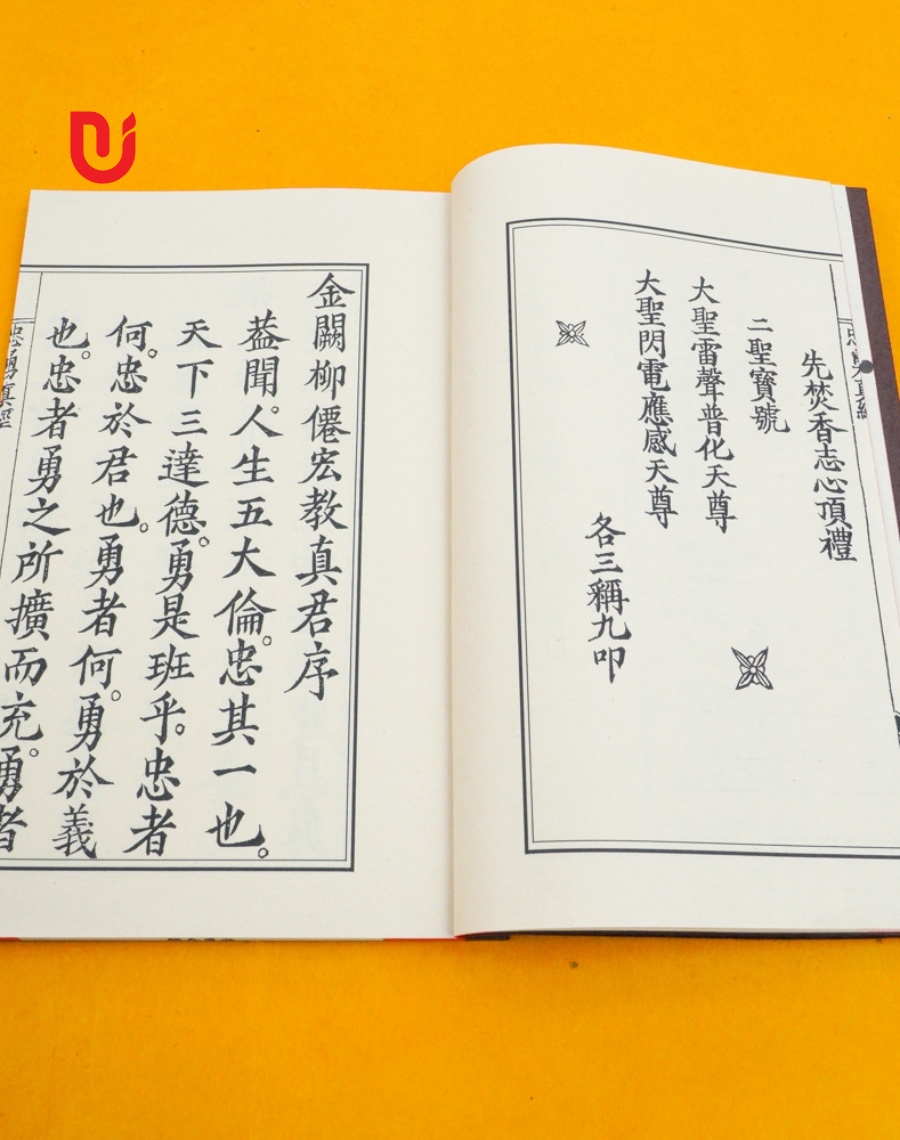 先焚香志心頂禮
二聖寶號
大聖雷聲普化天尊
大聖閃電應感天尊
各三稱九叩
金闕柳僊宏教真君序
葢聞。人生五大倫。忠其一也。
天下三達德。勇是班乎。忠者
何。忠於君也。勇者何。勇於義
也。忠者勇之所擴而充。勇者
忠勇真經